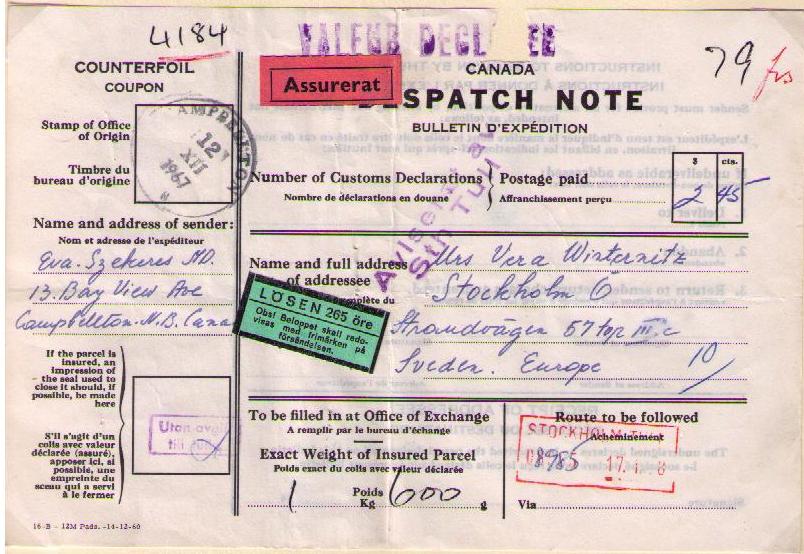 4184
VALEUR DECL EE
79 frs
COUNTERFOIL
COUPON
Assurerat
CANADA
DESPATCH NOTE
BULLETIN D'EXPÉDITION
Stamp of Office
of Origin
Timbre du
bureau d'origine
12
XII
1967
Number of Customs Declarations
Nombre de déclarations en douane
Postage paid
Affranchissement perçu
$ cts.
2 45
Aviserat av
Sth Tull
Name and address of sender:
Nom et adresse de l'expéditeur
Eva Szekeres MD.
13. Bay View Ave
Campbellton. N.B. Cana
Name and full address
of addressee
complète du
Mrs Vera Winternitz
Stockholm 6
Strandvägen 57 top III.c
Sveden. Europe
10
LÖSEN 265 öre
Obs! Beloppet skall redo-
visas med frimärken på
försändelsen.
If the parcel is
insured, an
impression of
the seal used to
close it should, if
possible, be made
here
S'il s'agit d'un
colis avec valeur
déclarée (assuré),
apposer ici, si
possible, une
empreinte du
sceau qui a servi
à le fermer
Utan avgift
till
To be filled in at Office of Exchange
A remplir par le bureau d'échange
Exact Weight of Insured Parcel
Poids exact du colis avec valeur déclarée
Poids
Kg
g
1 600
Route to be followed
Acheminement
STOCKHOLM
08985
Via
16-B - 12M Pads. -14-12-60